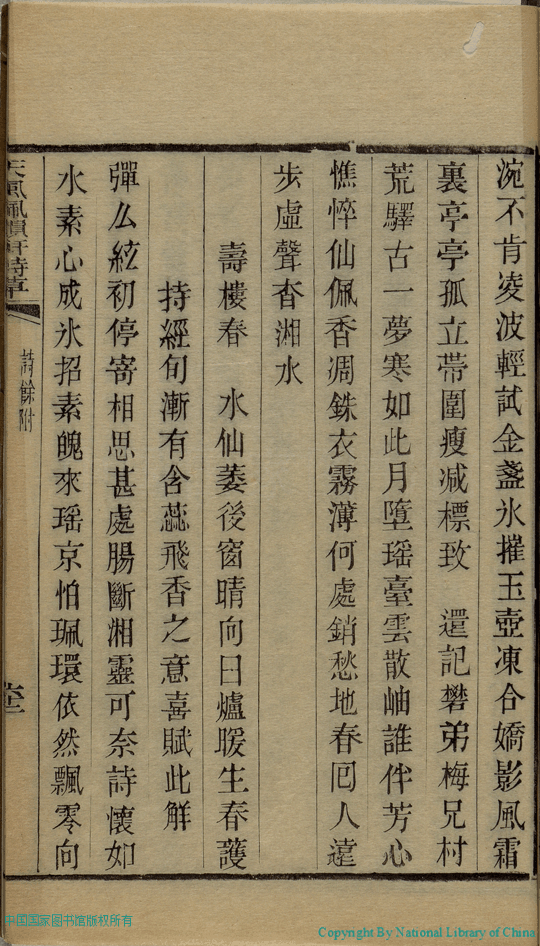 涴不肯凌波輕試金盞氷摧玉壺凍合嬌影風霜
裏亭亭孤立帶圍瘦減標致　還記礬弟梅兄村
荒驛古一夢寒如此月墮瑤臺雲散岫誰伴芳心
憔悴仙佩香凋銖衣霧薄何處銷愁地春囘人遠
步虛聲杳湘水
壽樓春　水仙萎後窗晴向日爐暖生春護
持經旬漸有含蕊飛香之意喜賦此解
彈么絃初停寄相思甚處腸斷湘靈可奈詩懷如
水素心成氷招素魄來瑤京怕珮環依然飄零向
天風佩韻軒詩草
詩餘附
中国国家图书馆版权所有
Copyright By National Library of China